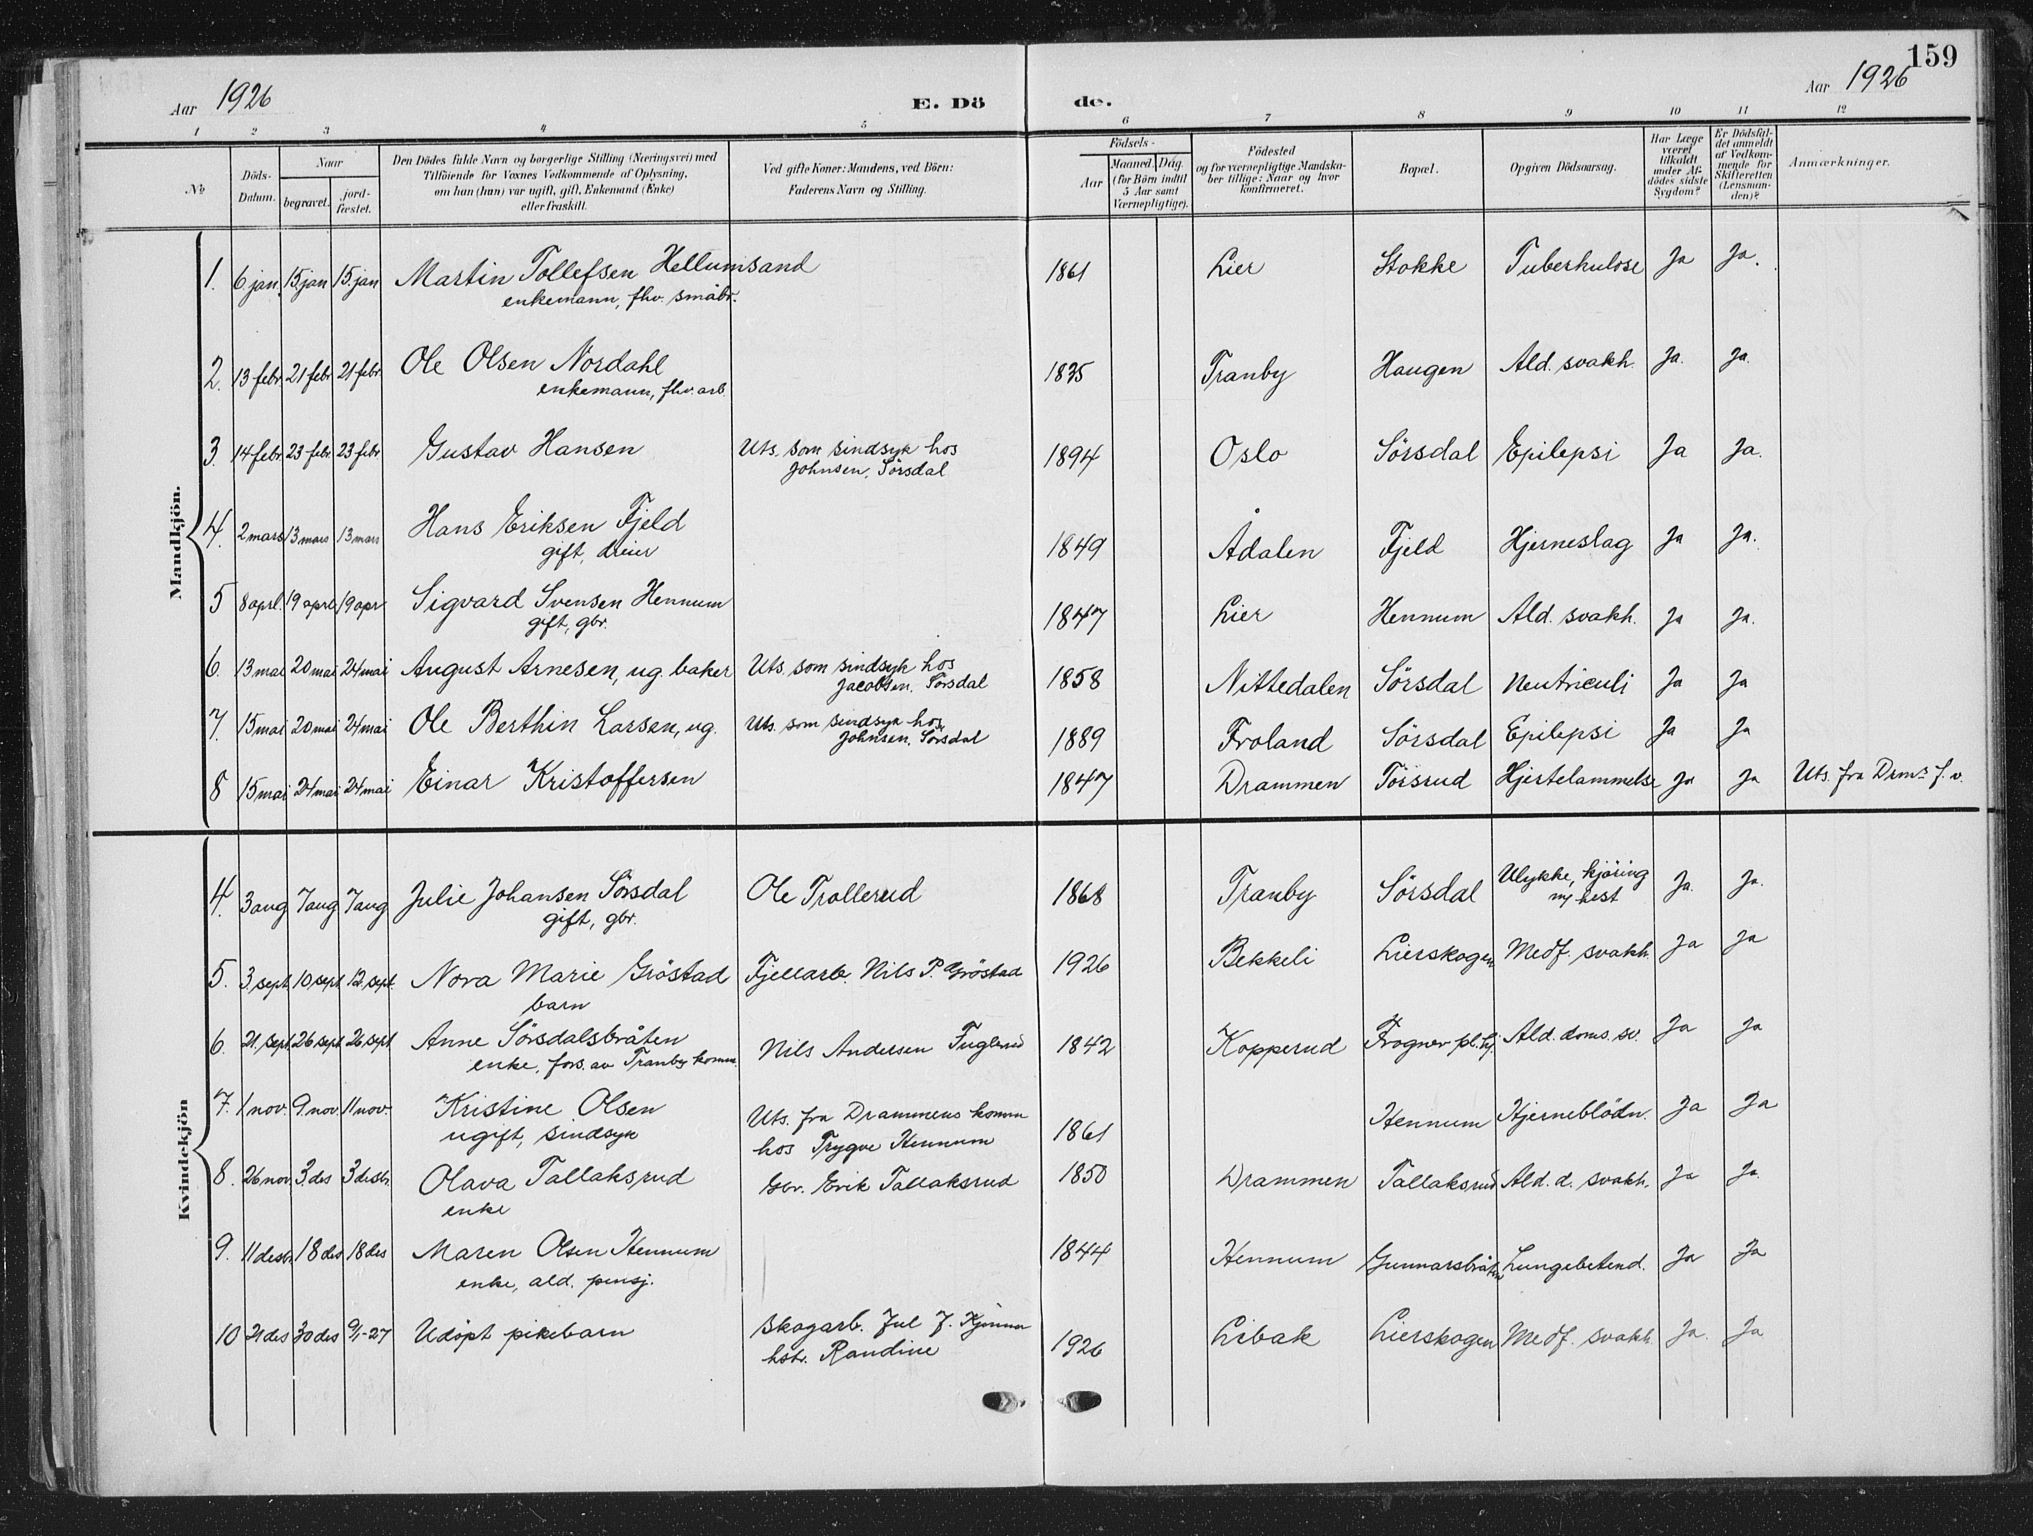 159
Aar 1926
E. Dö de.
Aar 1926
1 2 3 4 5 6 7 8 9 10 11 12
No
Döds-Datum.
Naar
begravet.
jord-fæstet.
Den Dödes fulde Navn og borgerlige Stilling (Næringsvei) med
Tilföiende for Voxnes Vedkommende af Oplysning,
om han (hun) var ugift, gift, Enkemand (Enke)
eller fraskilt.
Ved gifte Koner: Mandens, ved Börn:
Faderens Navn og Stilling.
Födsels-
Aar
Maaned. Dag.
(for Börn indtil
5 Aar samt
Værnepligtige).
Födested
og for værnepligtige Mandska-
ber tillige: Naar og hvor
konfirmeret.
Bopæl.
Opgiven Dödsaarsag.
Har Læge
været
tilkaldt
under Af-
dödes sidste
Sygdom?
Er Dödsfal-
det anmeldt
af Vedkom-
mende for
Skifteretten
(Lensman-
den)?
Anmærkninger.
Mandkjön.
1. 6 jan. 15. jan 15. jan Martin Tollefsen Hellumsand 1861 Lier Stokke Tuberkulose Ja Ja.
enkemann, fhv. småbr.
2. 13 febr. 21 febr 21 febr. Ole Olsen Nordahl 1835 Tranby Haugen Ald. svakh. Ja. Ja.
enkemann, fhv. arb.
3. 14 febr. 23 febr. 23 febr Gustav Hansen Uts. som sindsyk hos 1894 Oslo Sörsdal Epilepsi Ja Ja.
Johnsen, Sörsdal
4. 2 mars 13 mars 13 mars Hans Eriksen Fjeld 1849 Ådalen Fjeld Hjerneslag Ja Ja.
gift, eier
5 8 aprl. 19 aprl 19 apr Sigvard Svensen Hennum 1847 Lier Hennum Ald. svakh. Ja Ja.
gift, gbr.
6. 13 mai 20 mai 24 mai August Arnesen, ug. baker Uts. som sindsyk hos 1858 Nittedalen Sörsdal Ja Ja
Jacobsen, Sörsdal
7. 15 mai 20 mai 24 mai Ole Berthin Larsen, ug. Uts. som sindsyk hos 1889 Froland Sörsdal Epilepsi Ja Ja
Johnsen, Sörsdal
8 15 mai 24 mai 24 mai Einar Kristoffersen 1847 Drammen Törsrud Hjertelammelse Ja Ja Uts. fra Drms f. v.
Kvindekjön
4. 3 aug 7 aug 7 aug Julie Johansen Sörsdal Ole Trollerud 1868 Tranby Sörsdal Ulykke, kjöring Ja. Ja.
gift, gbr. m/ hest
5. 3 sept. 10 sept 12 sept. Nora Marie Gröstad Fjellarb. Nils P. Gröstad 1926 Bekkeli Lierskogen Medf. svakh. Ja Ja
barn
6. 21 sept. 26 sept 26 sept Anne Sörsdalsbråten Nils Andersen Fuglerud 1842 Kopperud Frogner pl. hj. Ald. doms. sv. Ja Ja
enke, fors. av Tranby komm.
7. 1 nov. 9. nov. 11 nov. Kristine Olsen Uts. fra Drammens komm 1861 Hennum Hjerneblödn. Ja Ja
ugift, sindsyk hos Trygve Hennum
8. 26 nov. 3. des 3 desbr. Olava Tallaksrud Gbr. Erik Tallaksrud 1850 Drammen Tallaksrud Ald. d. svakh. Ja Ja.
enke
9. 11 desbr. 18 des 18 des Maren Olsen Hennum 1844 Hennum Gunnarsbråten Lungebetend. Ja Ja
enke, ald. pensj.
10 21 des 30 des 9/1-27 Udöpt pikebarn Skogarb. Jul J. 1926 Libak Lierskogen Medf. svakh. Ja. Ja
hstr. Randine